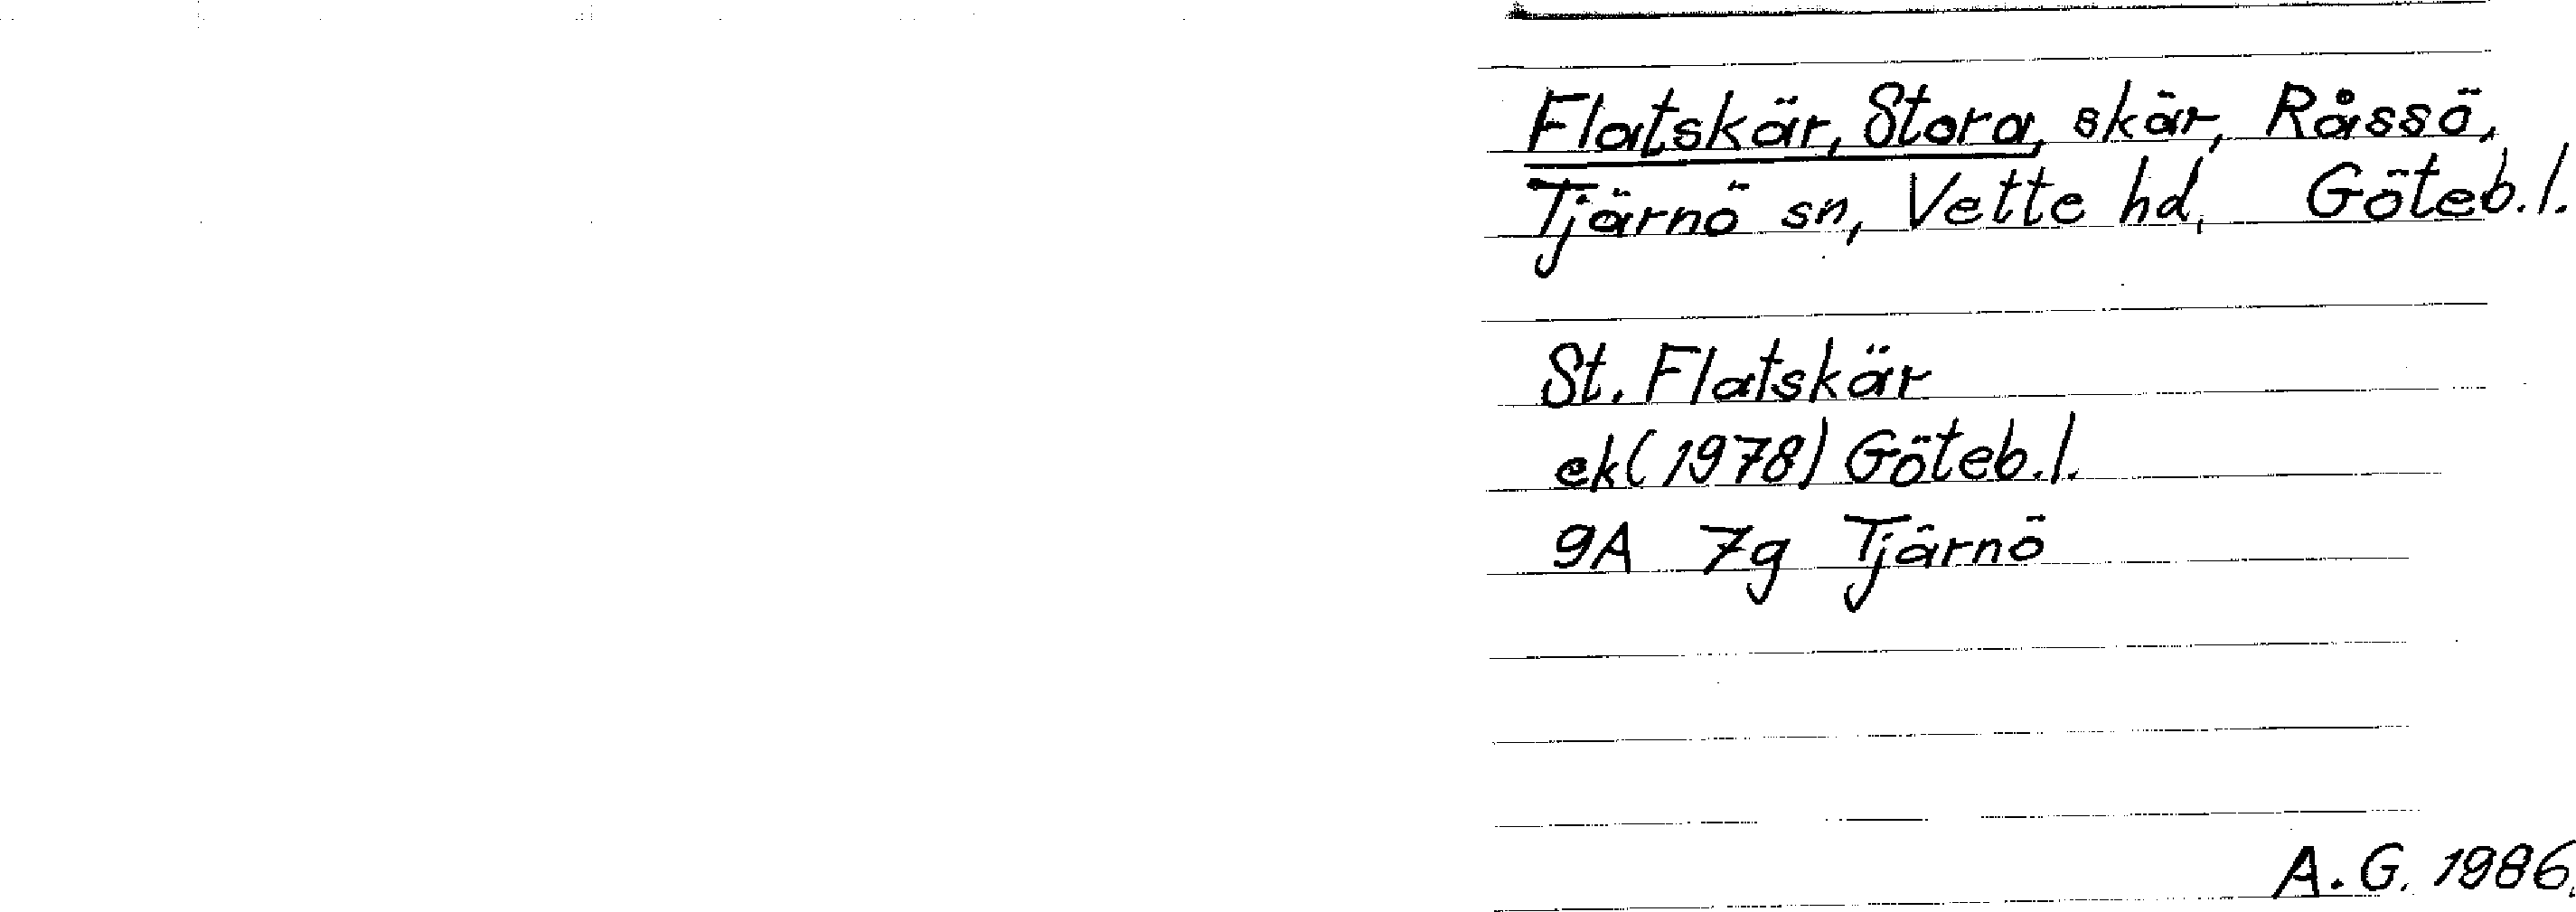 Flatskär, Stora, skär, Råssö,
Tjärnö sn, Vette hd, Göteb.l.
St. Flatskär
ek(1978) Göteb.l.
9A 7g Tjärnö
A.G. 1986.